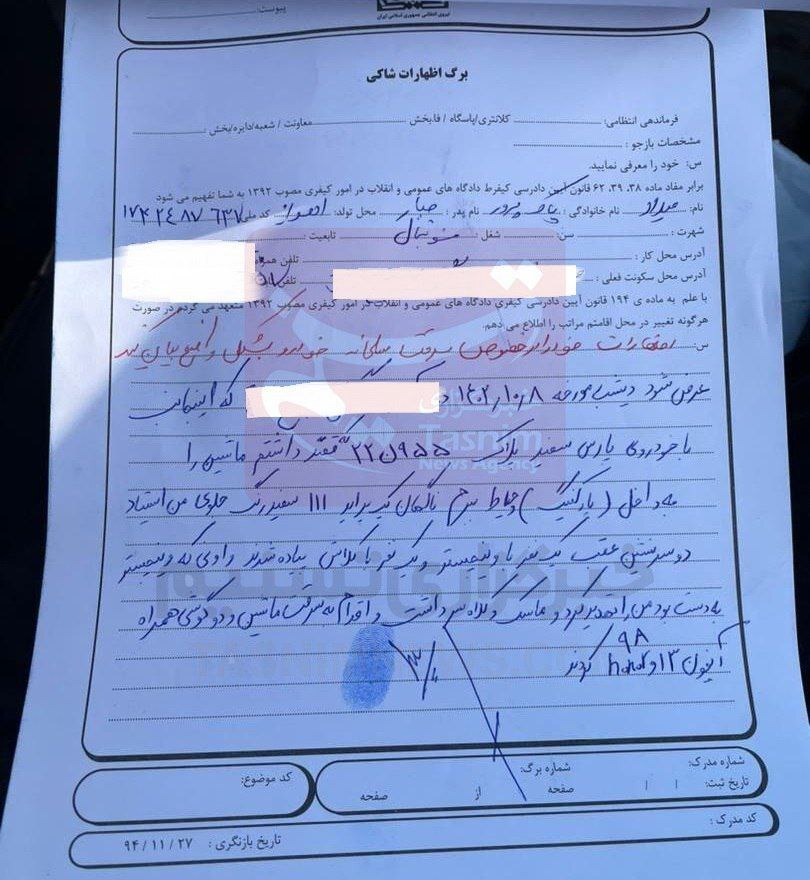 نیروی انتظامی جمهوری اسلامی ایران
پیوست:
برگ اظهارات شاکی
فرماندهی انتظامی: کلانتری/پاسگاه / فا.بخش معاونت / شعبه/دایره/بخش :
مشخصات بازجو :
س: خود را معرفی نمایید.
برابر مفاد ماده ۳۸، ۳۹، ۶۲ قانون آیین دادرسی کیفرط دادگاه های عمومی و انقلاب در امور کیفری مصوب ۱۳۹۲ به شما تفهیم می شود
نام: میلاد نام خانوادگی : نام پدر : محل تولد: اهواز کد ملی:
شهرت : سن: شغل : فوتبال تابعیت :
آدرس محل کار : تلفن همراه
آدرس محل سکونت فعلی : تلفن
با علم به ماده ی ۱۹۴ قانون آیین دادرسی کیفری دادگاه های عمومی و انقلاب در امور کیفری مصوب ۱۳۹۲ متعهد می گردم در صورت
هرگونه تغییر در محل اقامتم مراتب را اطلاع می دهم.
س: اظهارات خود را در خصوص سرقت مسلحانه خودرو بشکل واضح بیان کنید
عرض شود دیشب مورخه ۱۴۰۲/۱۰/۸ در که اینجانب
با خودروی پارس سفید پلاک ۲۲ ن ۹۵۵ قصد داشتم ماشین را
به داخل (پارکینگ) حیاط ببرم ناگهان یک پراید ۱۱۱ سفید رنگ جلوی من ایستاد
دو سرنشین عقب یک نفر با وینچستر و یک نفر با کلاش پیاده شدند راوی که وینچستر
به دست بود من را تهدید کرد و ماسک و کلاه سر داشت و اقدام به سرقت ماشین و دو گوشی همراه
آیفون ۱۳ و honor ۹A کردند
خبرگزاری
Tasnim
News Agency
خبرگزاری تسنیم
شماره مدرک:
تاریخ ثبت: / /
شماره برگ:
صفحه از صفحه
کد موضوع:
کد مدرک :
تاریخ بازنگری : ۹۴/۱۱/۲۷